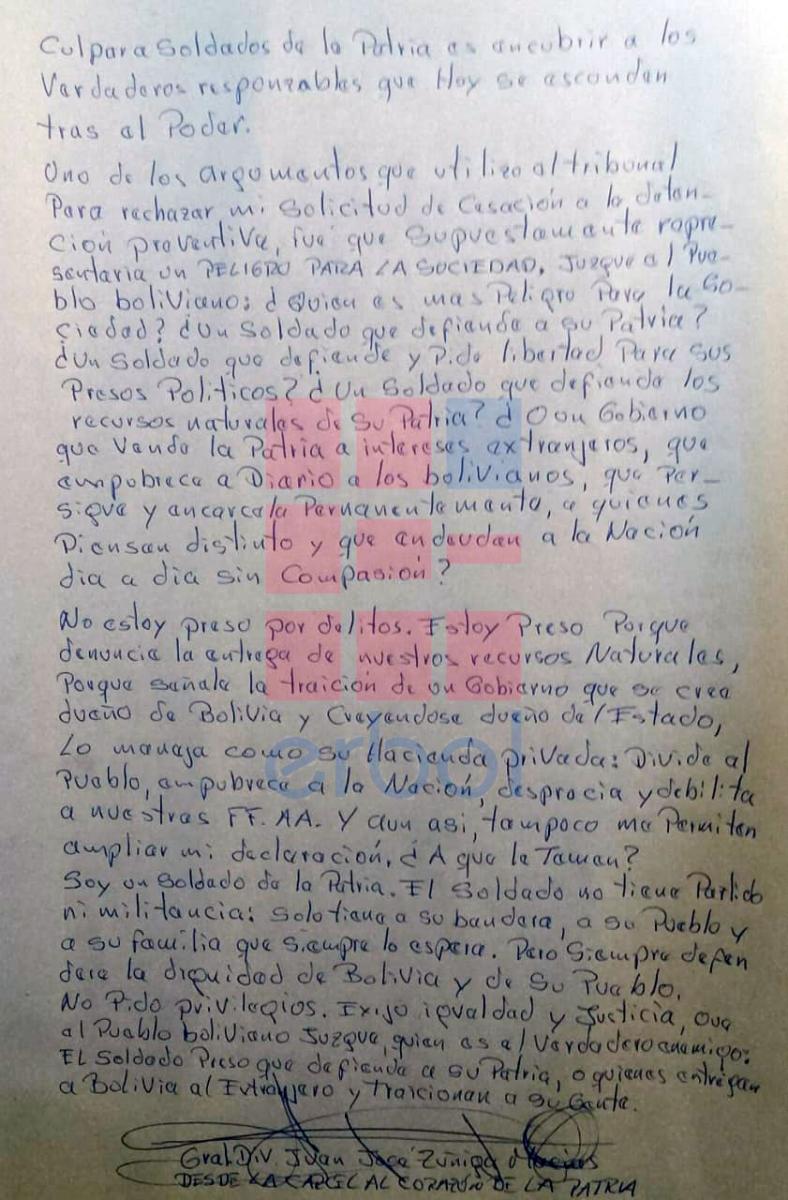 Culpara Soldados de la Patria es encubrir a los
Verdaderos responzables que Hoy se esconden
tras el Poder.
Uno de los argumentos que utilizo el tribunal
Para rechazar mi Solicitud de Cesación a la deten-
ción preventiva, fué que Supuestamente repre-
sentaria un PELIGRO PARA LA SOCIEDAD, Juzgue el Pue-
blo boliviano: ¿Quien es mas Peligro Para la So-
ciedad? ¿Un Soldado que defiende a su Patria?
¿Un Soldado que defiende y Pide libertad Para sus
Presos Politicos? ¿Un Soldado que defiende los
recursos naturales de Su Patria? ¿O un Gobierno
que Vende la Patria a intereses extranjeros, que
empobrece a Diario a los bolivianos, que Per-
sigue y encarcela Permanentemente, a quienes
Piensan distinto y que endeudan a la Nación
dia a dia sin Compasión?
No estoy preso por delitos. Estoy Preso Porque
denuncie la entrega de nuestros recursos Naturales,
Porque señale la traición de un Gobierno que se cree
dueño de Bolivia y Creyendose dueño del Estado,
Lo maneja como su Hacienda privada: Divide al
Pueblo, empubrece a la Nación, desprecia y debilita
a nuestras FF.AA. Y aun asi, tampoco me Permiten
ampliar mi declaración, ¿A que le Temen?
Soy un Soldado de la Patria. El Soldado no tiene Partido
ni militancia: Solo tiene a su bandera, a su Pueblo y
a su familia que siempre lo espera. Pero Siempre defen
dere la dignidad de Bolivia y de Su Pueblo.
No Pido privilegios. Exijo igualdad y Justicia, Que
el Pueblo boliviano Juzgue, quien es el Verdadero enemigo:
EL Soldado Preso que defiende a su Patria, o quienes entregan
a Bolivia al Extranjero y Traicionan a su Gente.
Gral. Div. Juan José Zuñiga Macias
DESDE LA CARCEL AL CORAZÓN DE LA PATRIA
erbol